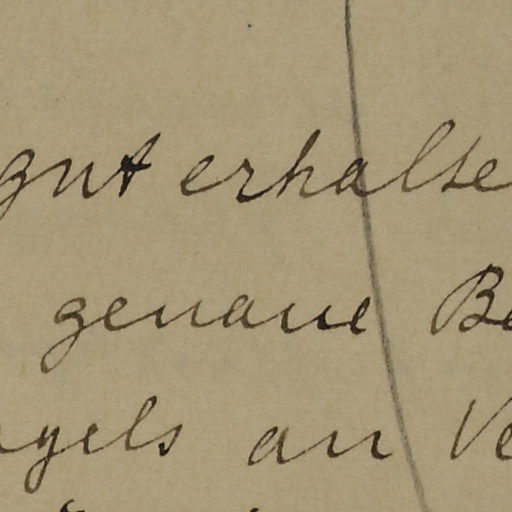 gut erhalte
genaue Be
gels an Ve